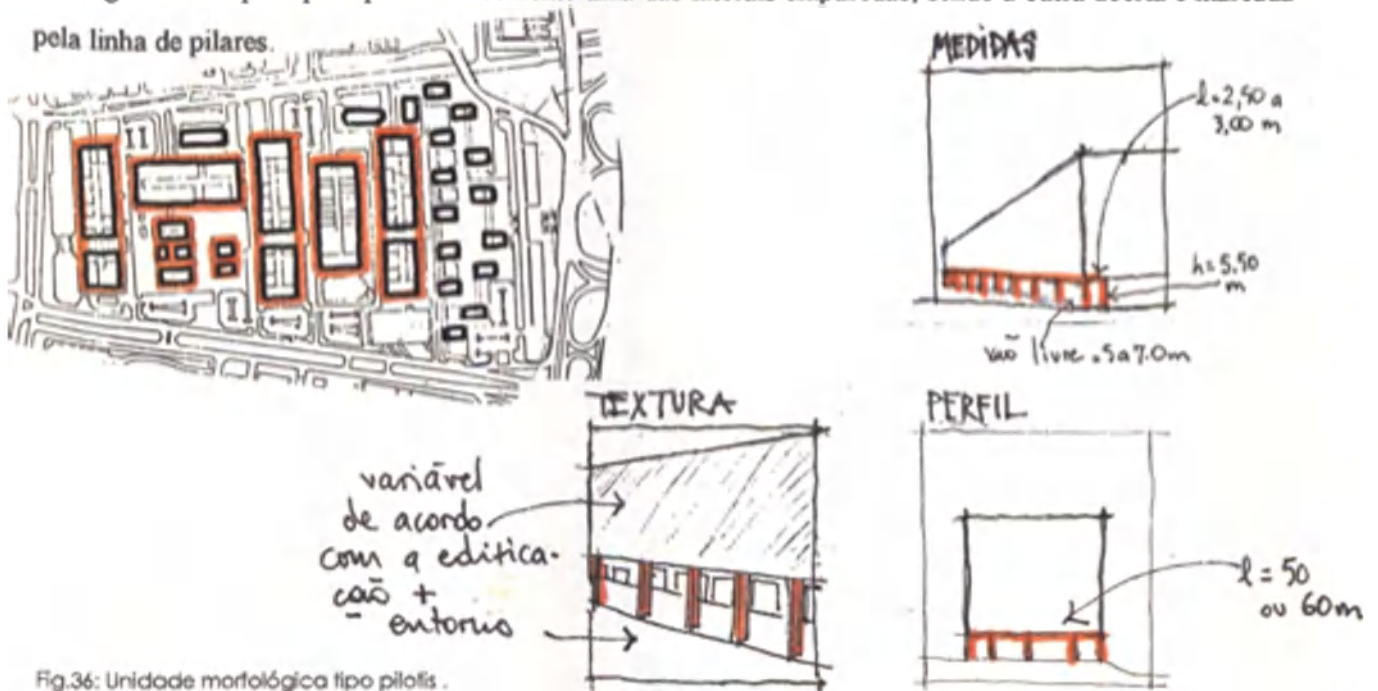 pela linha de pilares.
MEDIDAS
l=2,50 a
3,00 m
h=5.50
m
vão livre=5a7.0m
TEXTURA
variável
de acordo
com a edifica-
cão +
entorno
PERFIL
l=50
ou 60m
Fig.36: Unidade morfológica tipo pilotis .